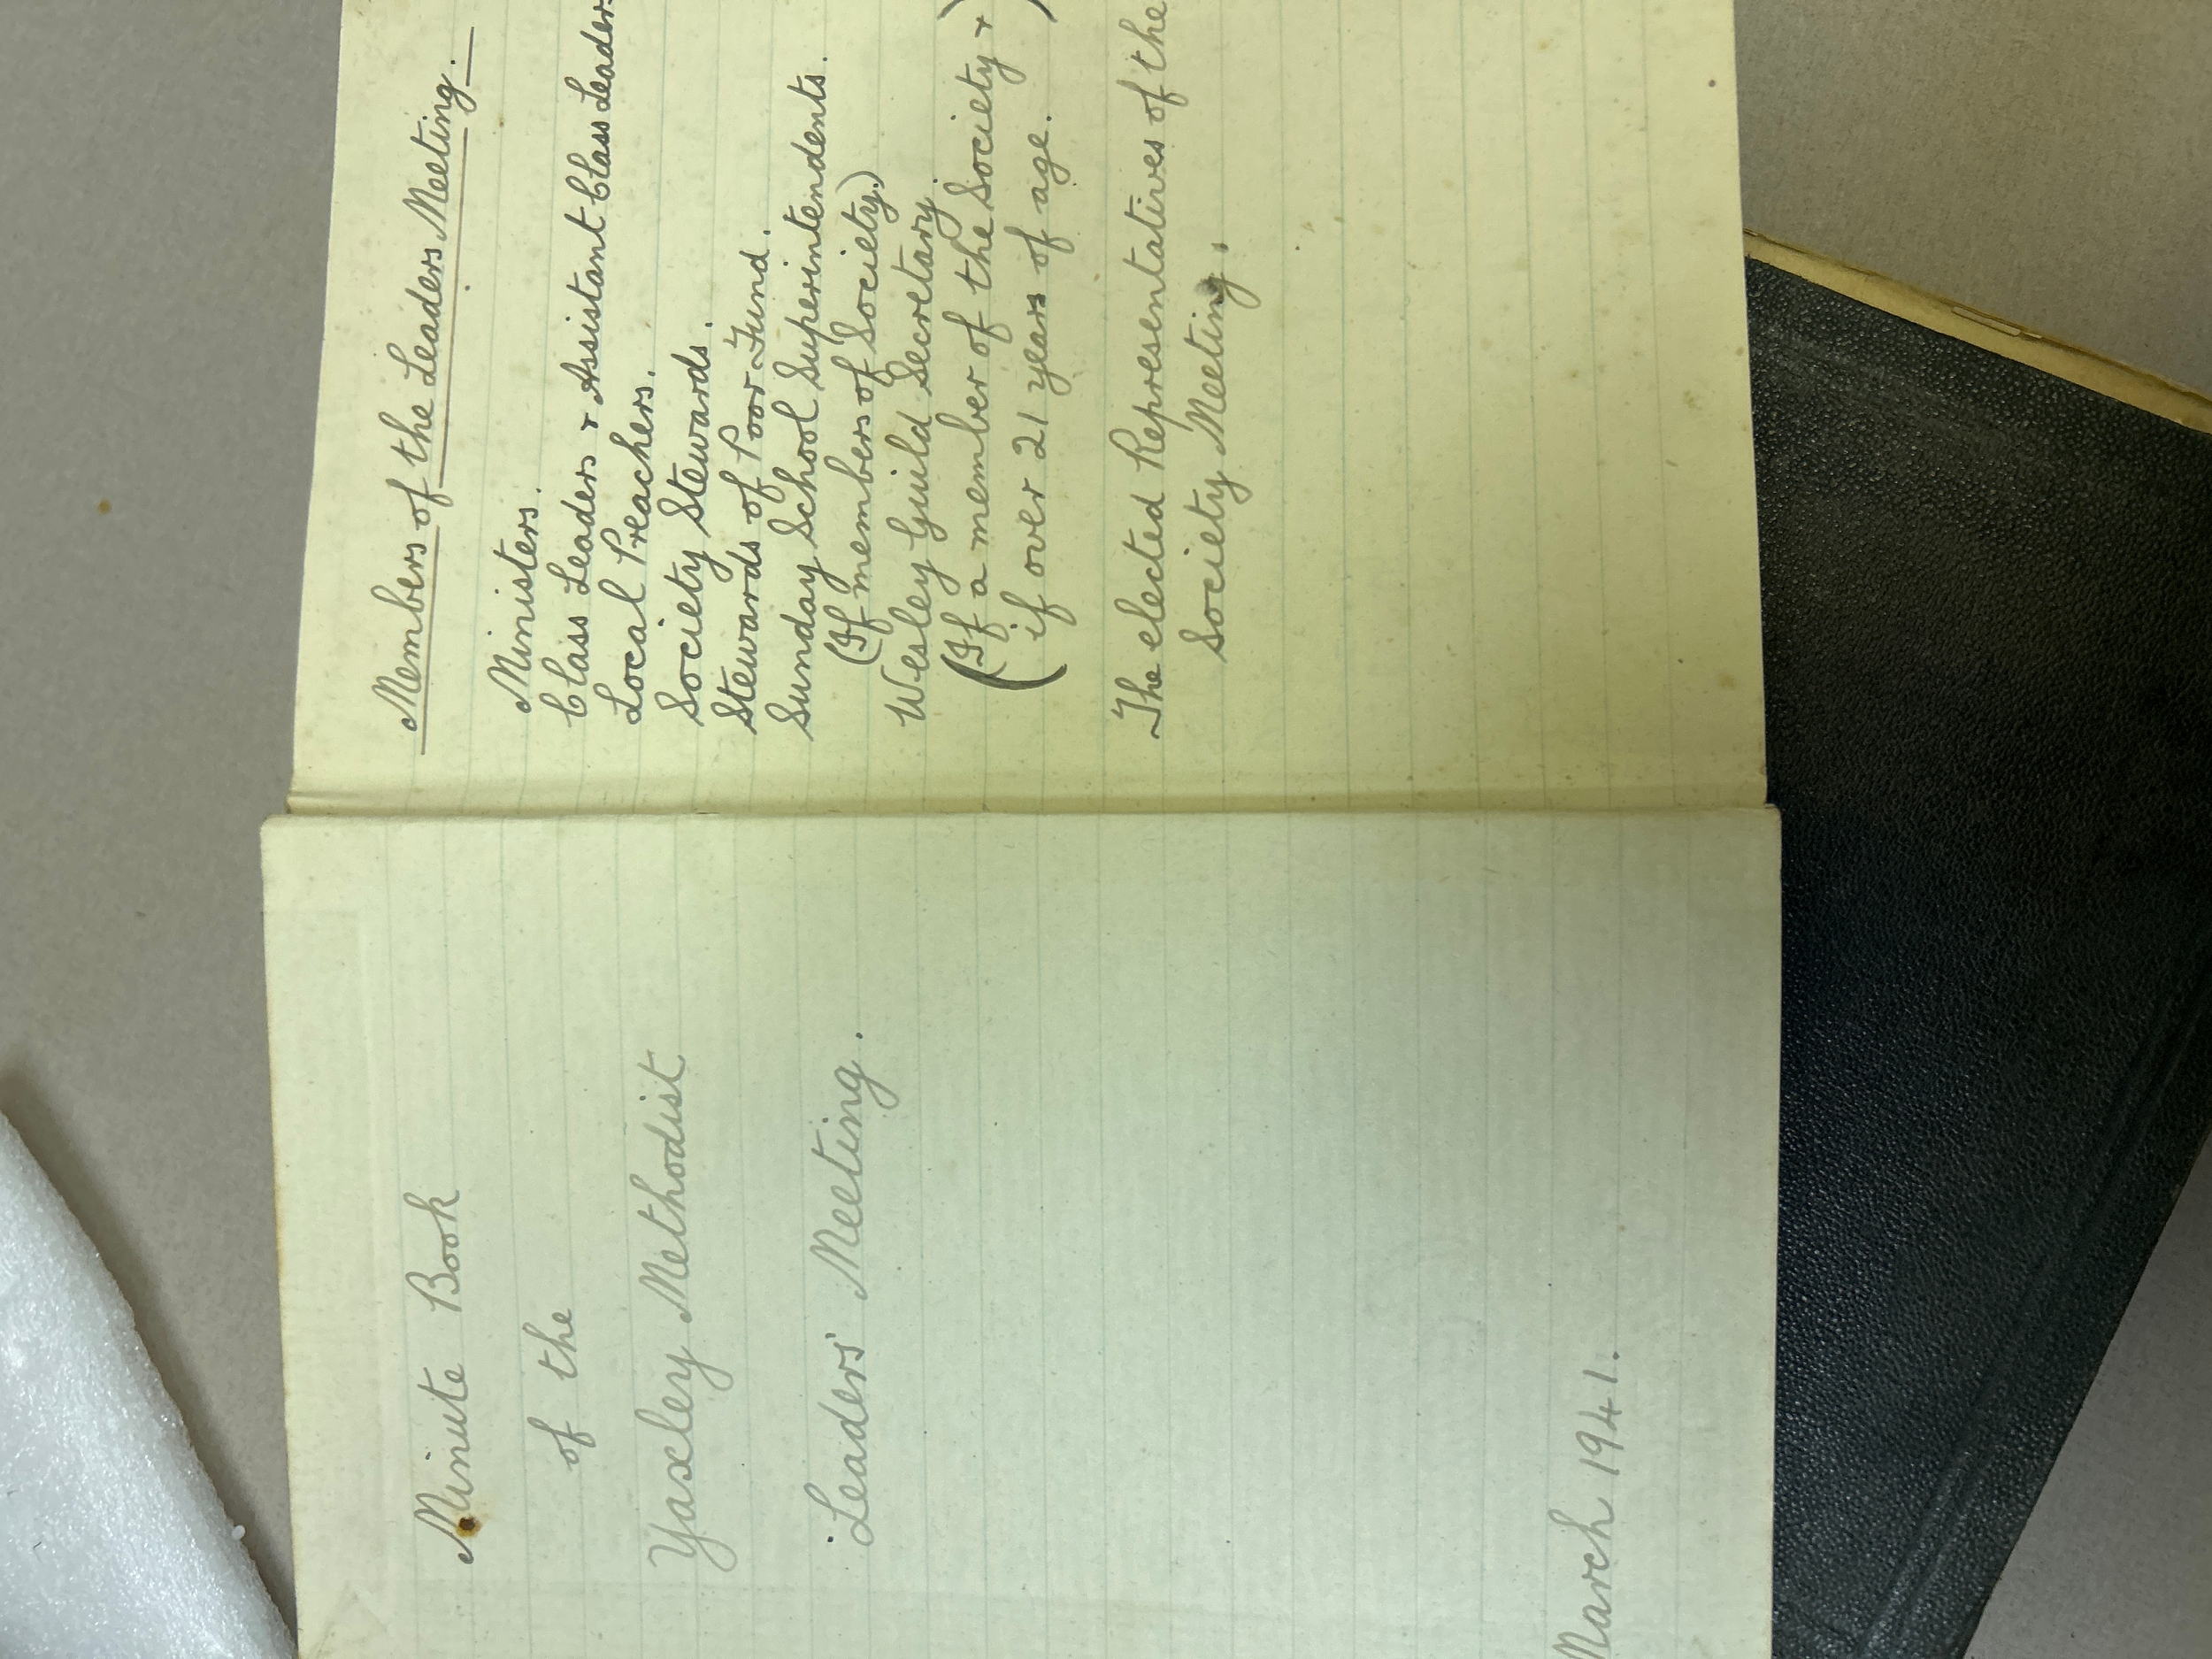 Minute Book
of the
Yaxley Methodist
Leaders' Meeting.
March 1941.
Members of the Leaders Meeting.
Ministers.
Class Leaders & Assistant Class Leaders
Local Preachers.
Society Stewards.
Stewards of Poor Fund.
Sunday School Superintendents.
(If members of Society.)
Wesley Guild Secretary.
(If a member of the Society &
if over 21 years of age.)
The elected Representatives of the
Society Meeting.